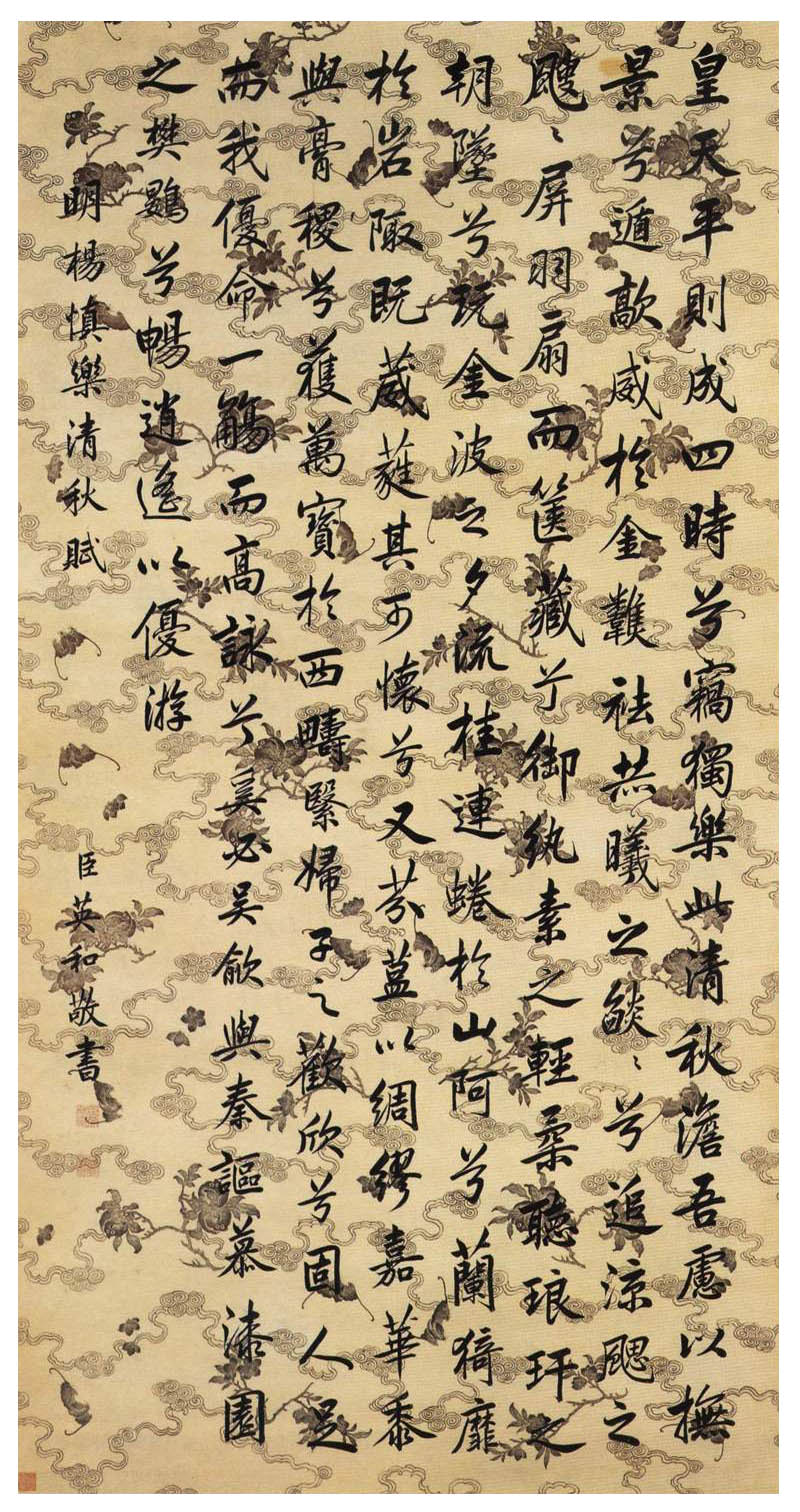 皇天平則成四時兮竊獨樂此清秋澹吾慮以撫
景兮遁歊威於金祛赫曦之燄〻兮追涼颸之
颼〻屏羽扇而篋藏兮御紈素之輕柔聽琅玕之
朝墜兮玩金波之夕流桂連蜷於山阿兮蘭猗靡
於岩陬既葳蕤其可懷兮又芬葐以綢繆嘉華黍
與膏稷兮獲萬寶於西疇繄婦子之歡欣兮固人足
而我優命一觴而高詠兮奚必吳歈與秦謳慕漆園
之樊鷃兮暢逍遙以優游
明楊慎樂清秋賦
臣英和敬書